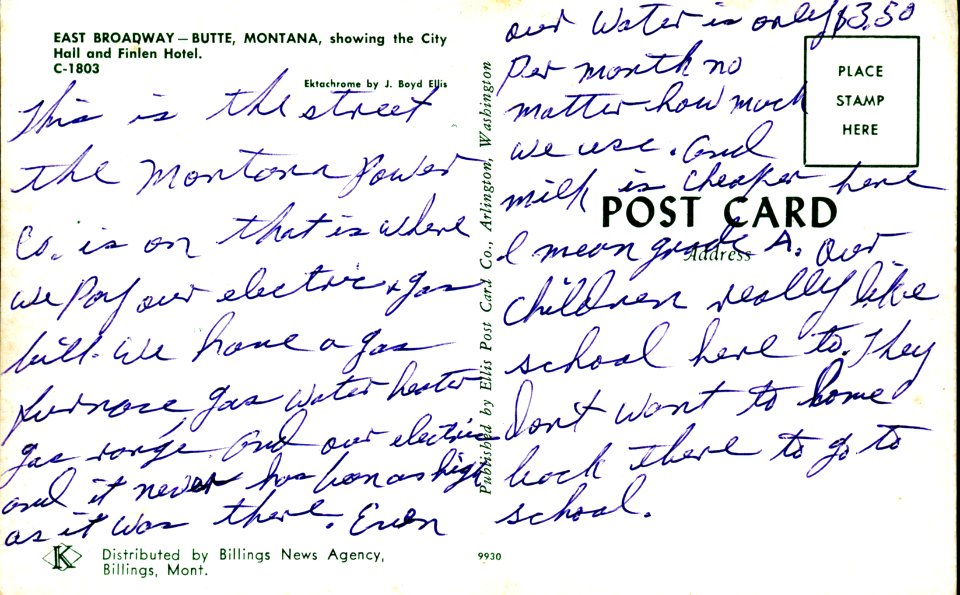 EAST BROADWAY — BUTTE, MONTANA, showing the City
Hall and Finlen Hotel.
C-1803
Ektachrome by J. Boyd Ellis
This is the street
the Montana Power
Co. is on that is where
we pay our electric & gas
bill. We have a gas
furnace, gas water heater
gas range. And our electric
and it never has been as high
as it was there. Even
Distributed by Billings News Agency,
Billings, Mont.
Published by Ellis Post Card Co., Arlington, Washington
9930
our water is only $3.50
per month no
matter how much
we use. And
milk is cheaper here
I mean grade A. Our
children really like
school here to. They
don't want to home
back there to go to
school.
PLACE
STAMP
HERE
POST CARD
Address
K